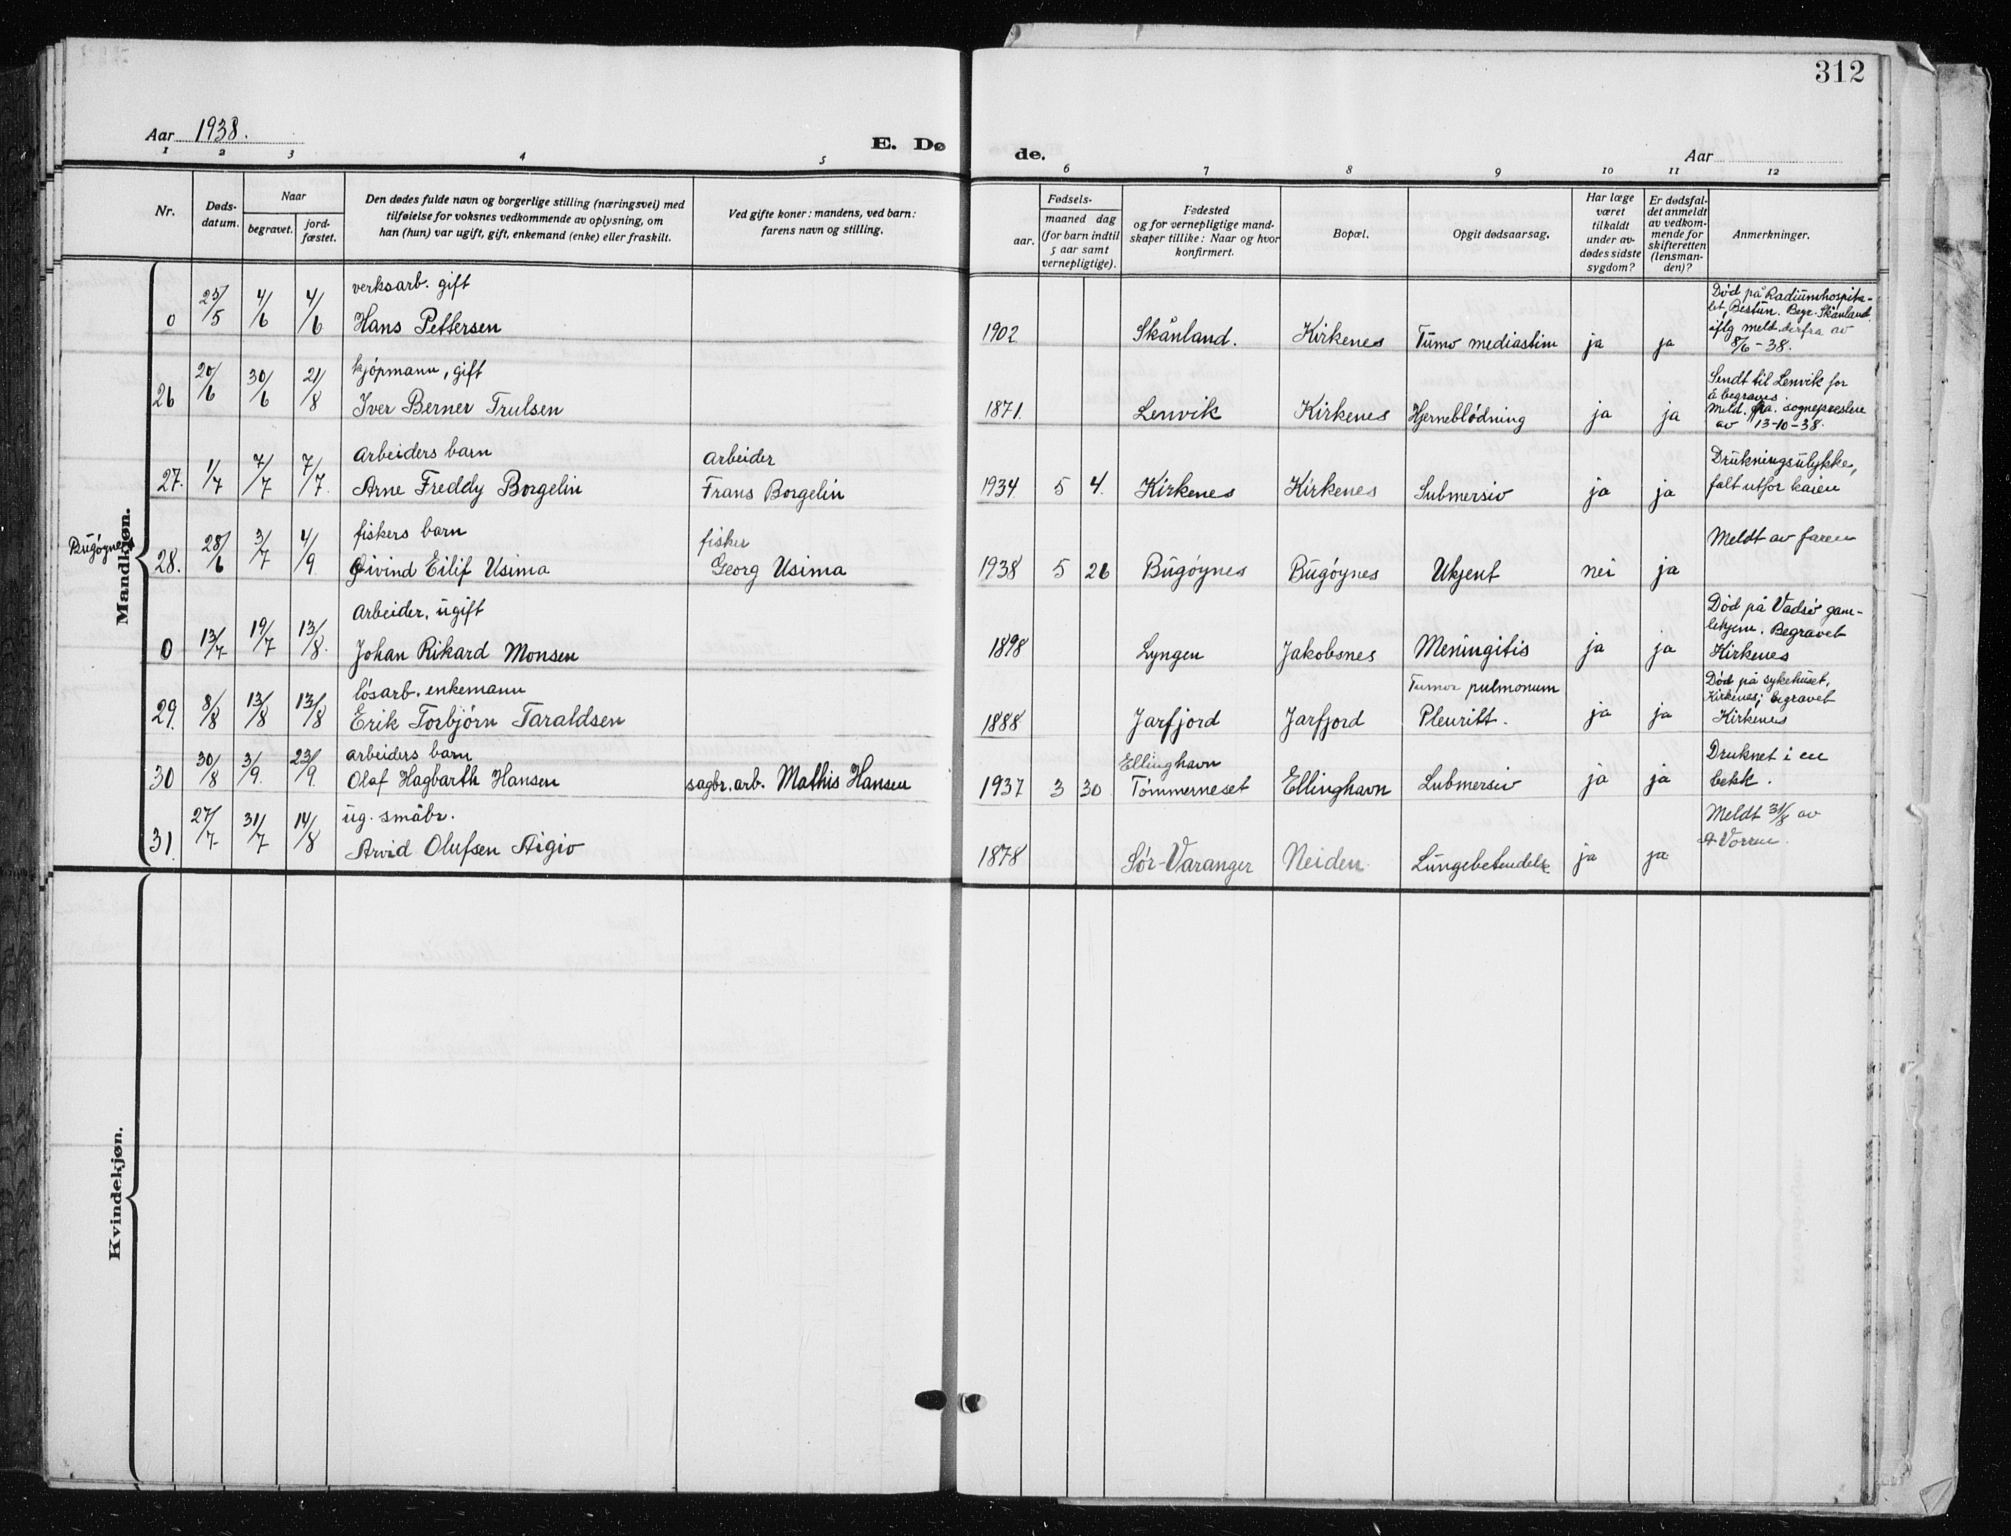 312
Aar 1938.
E. Dø
de.
Aar
1 2 3 4 5 6 7 8 9 10 11 12
Nr.
Døds-
datum.
Naar
begravet.
jord-
fæstet.
Den dødes fulde navn og borgerlige stilling (næringsvei) med
tilføielse for voksnes vedkommende av oplysning, om
han (hun) var ugift, gift, enkemand (enke) eller fraskilt.
Ved gifte koner: mandens, ved barn:
farens navn og stilling.
Fødsels-
aar.
maaned dag
(for barn indtil
5 aar samt
vernepligtige).
Fødested
og for vernepligtige mand-
skaper tillike: Naar og hvor
konfirmert.
Bopæl.
Opgit dødsaarsag.
Har læge
været
tilkaldt
under av-
dødes sidste
sygdom?
Er dødsfal-
det anmeldt
av vedkom-
mende for
skifteretten
(lensman-
den)?
Anmerkninger.
Mandkjøn.
0 25/5 4/6 4/6
verksarb. gift
Hans Pettersen
1902 Skånland. Kirkenes Tumo mediastini ja ja
Død på Radiumhospita-
let, Bestun. Begr. Skånland
iflg meld. derfra av
8/6 - 38.
26 20/6 30/6 21/8
kjøpmann, gift
Iver Berner Trulsen
1871. Lenvik Kirkenes Hjerneblødning ja ja
Sendt til Lenvik for
å begraves.
Meld. fra. sognepresten
av 13-10-38.
27. 1/7 7/7 7/7.
Arbeiders barn
Arne Freddy Borgelin
Arbeider
Frans Borgelin
1934 5 4. Kirkenes Kirkenes Submersio ja ja
Drukningsulykke,
falt utfor kaien
Bugøynes
28. 28/6 3/7 4/9
fiskers barn
Øivind Eilif Usima
fisker
Georg Usima
1938 5 26 Bugøynes Bugøynes Ukjent nei ja
Meldt av faren
0 13/7 19/7 13/8.
Arbeider, ugift
Johan Rikard Monsen
1898 Lyngen Jakobsnes Meningitis ja ja
Død på Vadsø gam-
lehjem. Begravet
Kirkenes
29. 8/8 13/8 13/8
løsarb. enkemann
Erik Torbjørn Taraldsen
1888 Jarfjord Jarfjord
Tumor pulmonum
Pleuritt. ja ja
Død på sykehuset,
Kirkenes; begravet
Kirkenes
30 30/8 3/9. 23/9.
arbeiders barn
Olaf Hagbarth Hansen
sagbr. arb. Mathis Hansen
1937 3 30
Ellinghavn
Tømmerneset Ellinghavn Submersio ja ja
Druknet i en
bekk.
31. 27/7 31/7 14/8
ug. småbr.
Arvid Olufsen Aigio
1878 Sør-Varanger Neiden Lungebetendelse ja ja
Meldt 31/8 av
A Vorren.
Kvindekjøn.